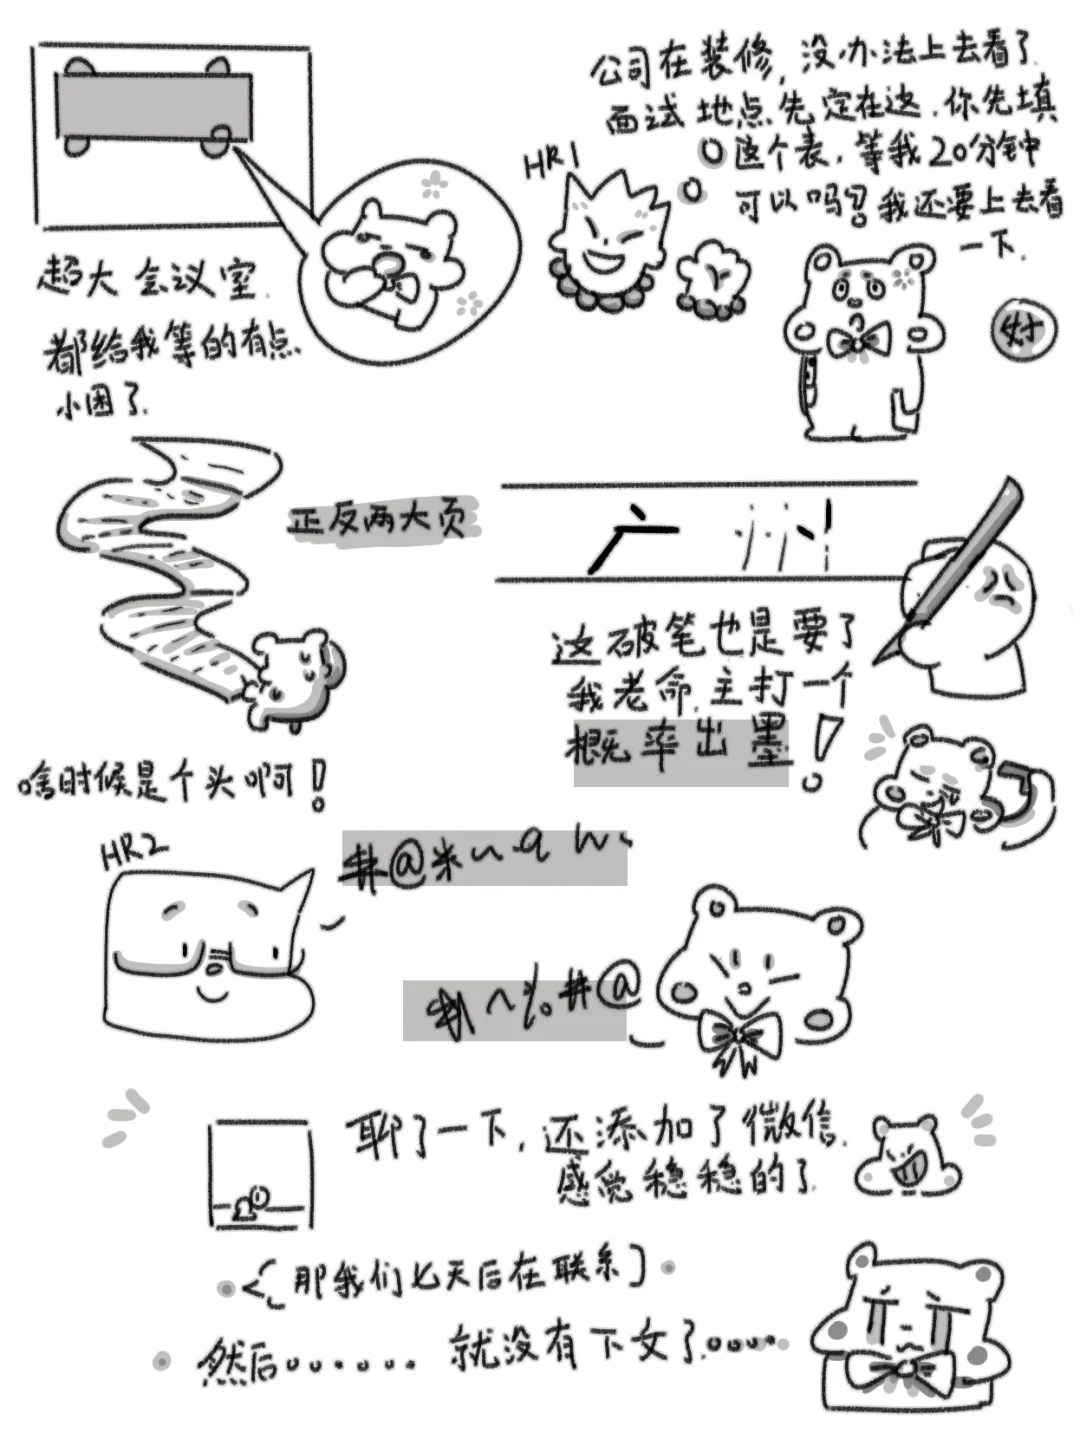 公司在装修,没办法上去看了
面试地点先定在这.你先填
这个表,等我20分钟
可以吗?我还要上去看
一下.
HR1
好
超大会议室.
都给我等的有点
小困了.
正反两大页
这破笔也是要了
我老命.主打一个
概率出墨!
啥时候是个头啊!
HR2
#@米~.q w.
~%#@
聊了一下,还添加了微信.
感觉稳稳的了.
<[那我们七天后在联系]
然后。。。。。。就没有下文了。。。。